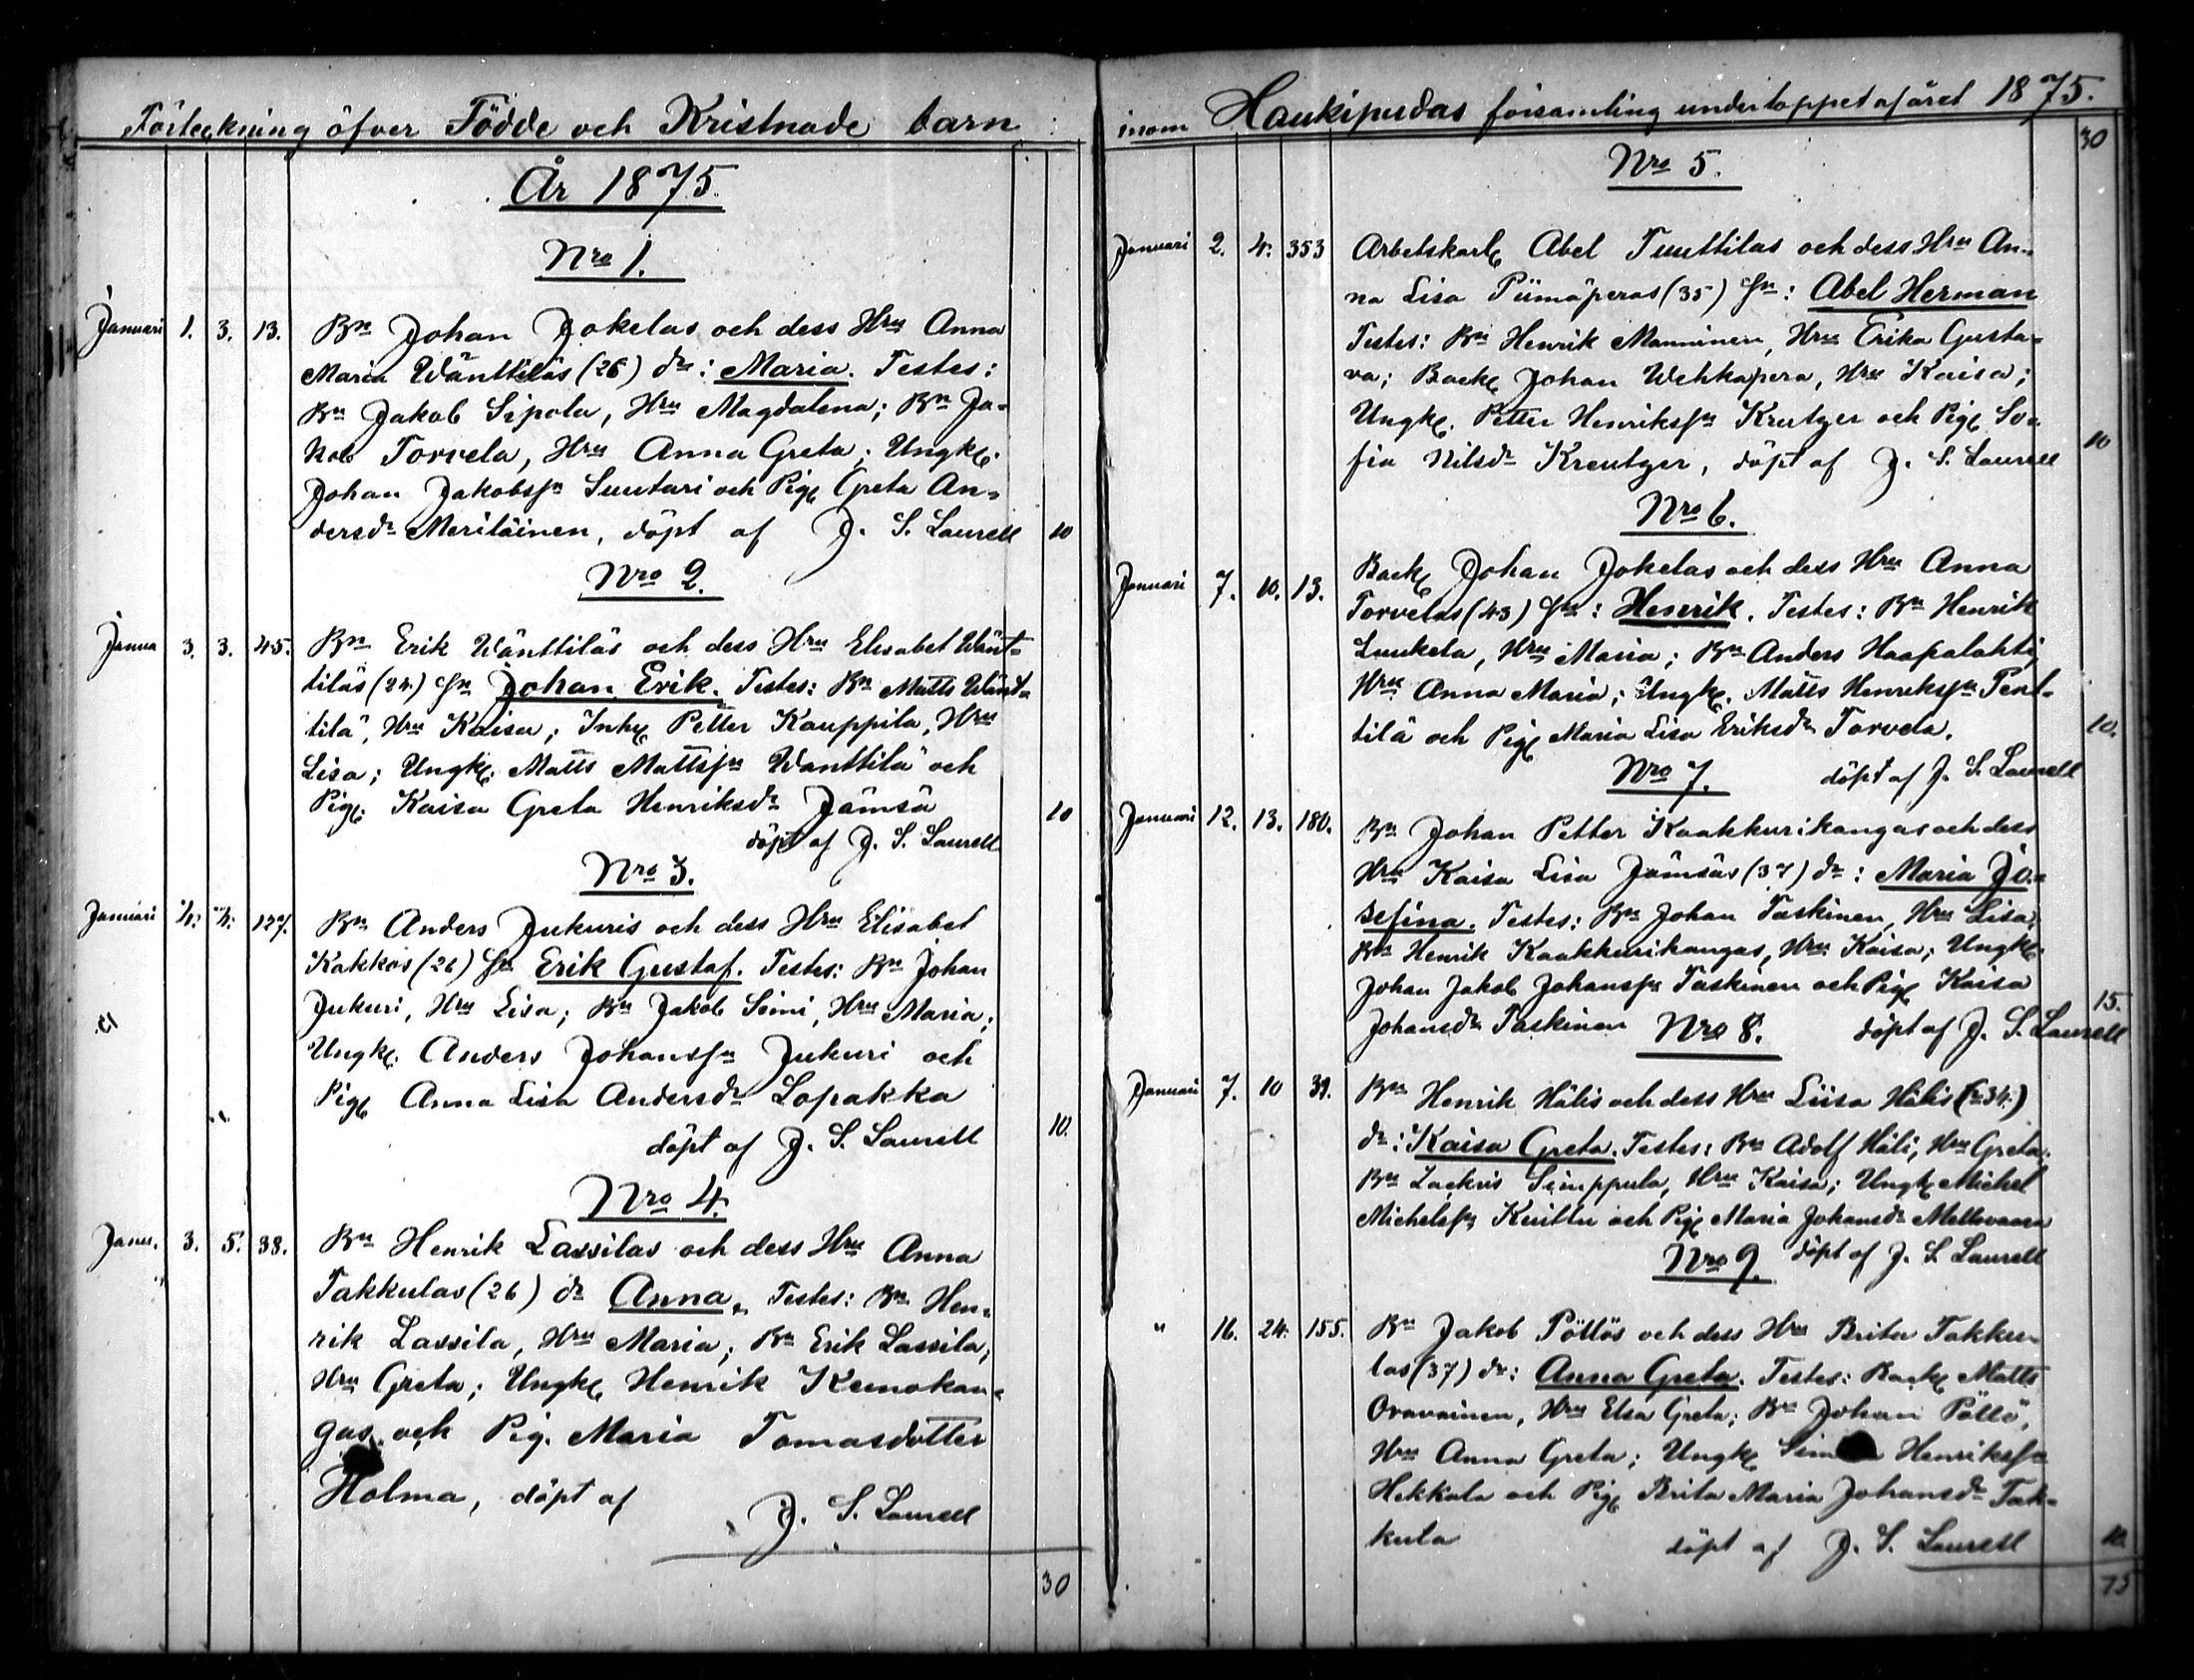 Förteckning öfver Födde och Kristnade barn:
År 1875.
Nro 1.
Januari 1. 3. 13. Bn Johan Jokelas och dess Hru Anna
Maria Wänttiläs (26) dr: Maria. Testes:
Bn Jakob Sipola, Hru Magdalena; Bn Ja-
kob Torvela, Hru Anna Greta; Ungkl.
Johan Jakobssn Suutari och Pig. Greta An-
dersdr Meriläinen, döpt af J. S. Laurell 10
Nro 2.
Janua 3. 3. 45. Bn Erik Wänttiläs och dess Hru Elisabet Wänt-
tiläs (24) sn Johan Erik. Testes: Bn Matts Wänt-
tilä, Hru Kaisa; Inh. Petter Kauppila, Hru
Lisa; Ungkl. Matts Mattssn Wanttilä och
Pig. Kaisa Greta Henriksdr Jämsä 10
döpt af J. S. Laurell
Nro 3.
Januari 4. 4. 127. Bn Anders Jukuris och dess Hru Elisabet
Kakkos (26) sn Erik Gustaf. Testes: Bn Johan
Jukuri, Hru Lisa; Bn Jakob Soini, Hru Maria;
Ungkl. Anders Johanssn Jukuri och
Pig. Anna Lisa Andersdr Lopakka
döpt af J. S. Laurell 10.
Nro 4.
Janu. 3. 5. 38. Bn Henrik Lassilas och dess Hru Anna
Takkulas (26) dr Anna, Testes: Bn Hen-
rik Lassila, Hru Maria; Bn Erik Lassila,
Hru Greta; Ungkl. Henrik Keinokan-
gas och Pig. Maria Tomasdotter
Holma, döpt af
J. S. Laurell
30
inom Haukipudas församling under loppet af året 1875.
30
Nro 5.
Januari 2. 4. 353 Arbetskarl Abel Tuuttilas och dess Hru An-
na Lisa Piimäperas (35) sn: Abel Herman
Testes: Bn Henrik Manninen, Hru Erika Gusta-
va; Back. Johan Wehkapera, Hru Kaisa;
Ungkl. Petter Henrikssn Kreutzer och Pig. So-
fia Nilsdr Kreutzer, döpt af J. S. Laurell 10
Nro 6.
Januari 7. 10. 13. Back. Johan Jokelas och dess Hru Anna
Torvelas (43) sn: Henrik. Testes: Bn Henrik
Luukela, Hru Maria; Bn Anders Haapalahti,
Hru Anna Maria; Ungkl. Matts Henrikssn Pent-
tilä och Pig. Maria Lisa Eriksdr Torvela. 10.
Nro 7. döpt af J. S. Laurell
Januari 12. 13. 180. Bn Johan Petter Kaakkurikangas och dess
Hru Kaisa Lisa Jämsäs (37) dr: Maria Jo-
sefina. Testes: Bn Johan Taskinen, Hru Lisa;
Bn Henrik Kaakkurikangas, Hru Kaisa; Ungkl.
Johan Jakob Johanssn Taskinen och Pig. Kaisa
Johansdr Taskinen döpt af J. S. Laurell 15.
Nro 8.
Januari 7. 10 39. Bn Henrik Hälis och dess Hru Liisa Hälis (34.)
dr: Kaisa Greta. Testes: Bn Adolf Häli, Hru Greta;
Bn Zackris Simppula, Hru Kaisa; Ungkl. Michel
Michelssn och Pig. Maria Johansdr
Nro 9. döpt af J. S. Laurell
" 16. 24. 155. Bn Jakob Pöllös och dess Hru Brita Takku-
las (37) dr: Anna Greta. Testes: Back. Matts
Oravainen, Hru Elsa Greta; Bn Johan Pöllö,
Hru Anna Greta; Ungkl. Henrikssn
Hekkala och Pig. Brita Maria Johansdr Tak-
kula döpt af J. S. Laurell 10.
75